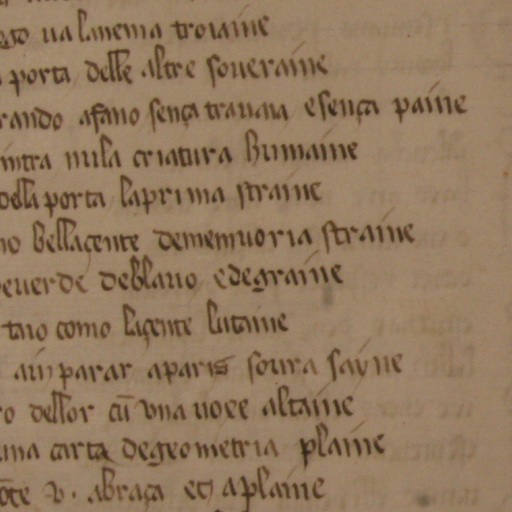 ua lanema troiaine
porta delle altre soueraine
rando afano sença trauaia esença paine
intra mila criatura humaine
della porta laprima straine
no bellaçente dememuoria straine
euerde deblauo edegraine
taio como laçente lutaine
ain parar aparis soura sayne
ro dellor cu una uoce altaine
una carta degeometria plaine
v. abraça et aplaine